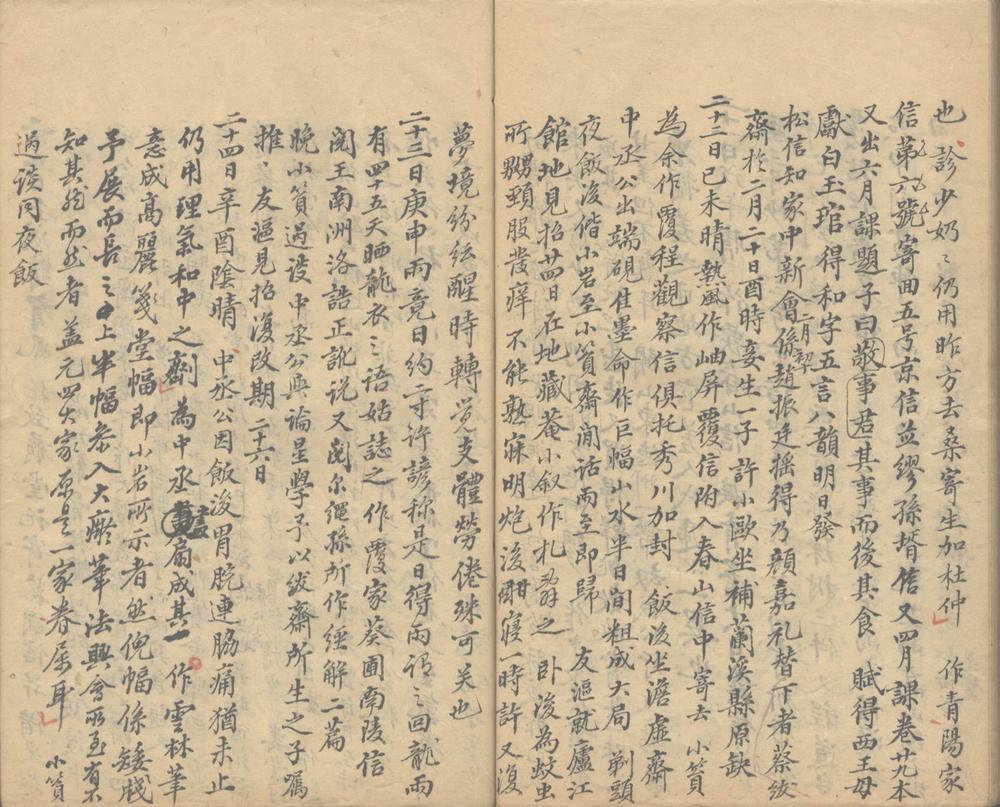 也 診少奶〻仍用昨方去桑寄生加杜仲 作青陽家
信第六號寄回五号京信並繆孫壻信又四月課卷廿九本
又出六月課題子曰敬事君其事而後其食 賦得西王母
獻白玉琯得和字五言八韻明日發
松信知家中新會係趙振廷搖得乃顏嘉礼替下者蔡紱
齋於二月二十日酉時妾生一子 許小歐坐補蘭溪縣原缺
二十二日己未晴熱風作岫屏覆信附入春山信中寄去 小篔
為余作覆程觀察信俱托秀川加封 飯後坐澹虛齋
中丞公出端硯佳墨命作巨幅山水半日间粗成大局 剃頭
夜飯後偕小岩至小篔齋闲话雨至即歸 友漚就廬江
館地見招廿四日在地藏菴小叙作札辭之 卧後為蚊虫
所嬲頸股發痒不能熟寐明炮後酣寢一時許又復
夢境纷纭醒時轉觉支體勞倦殊可笑也
二十三日庚申雨竟日約二寸许諺称是日得雨謂之回龍雨
有四十五天晒龍衣之语姑誌之 作覆家葵圃南陵信
閲王南洲洛誥正訛说又閲尔繩孫所作经解二篇
晚小篔過谈中丞公與論星學予以紱齋所生之子囑
推、友漚見招復改期二十六日
二十四日辛酉陰晴 中丞公因飯後胃脘連脇痛猶未止
仍用理氣和中之劑 為中丞畫扇成其一 作雲林筆
意成高麗箋堂幅即小岩所示者然倪幅係矮牋
予展而長之上半幅叅入大癡筆法興會所至有不
知其然而然者盖元四大家原是一家眷属耳 小篔
過谈同夜飯